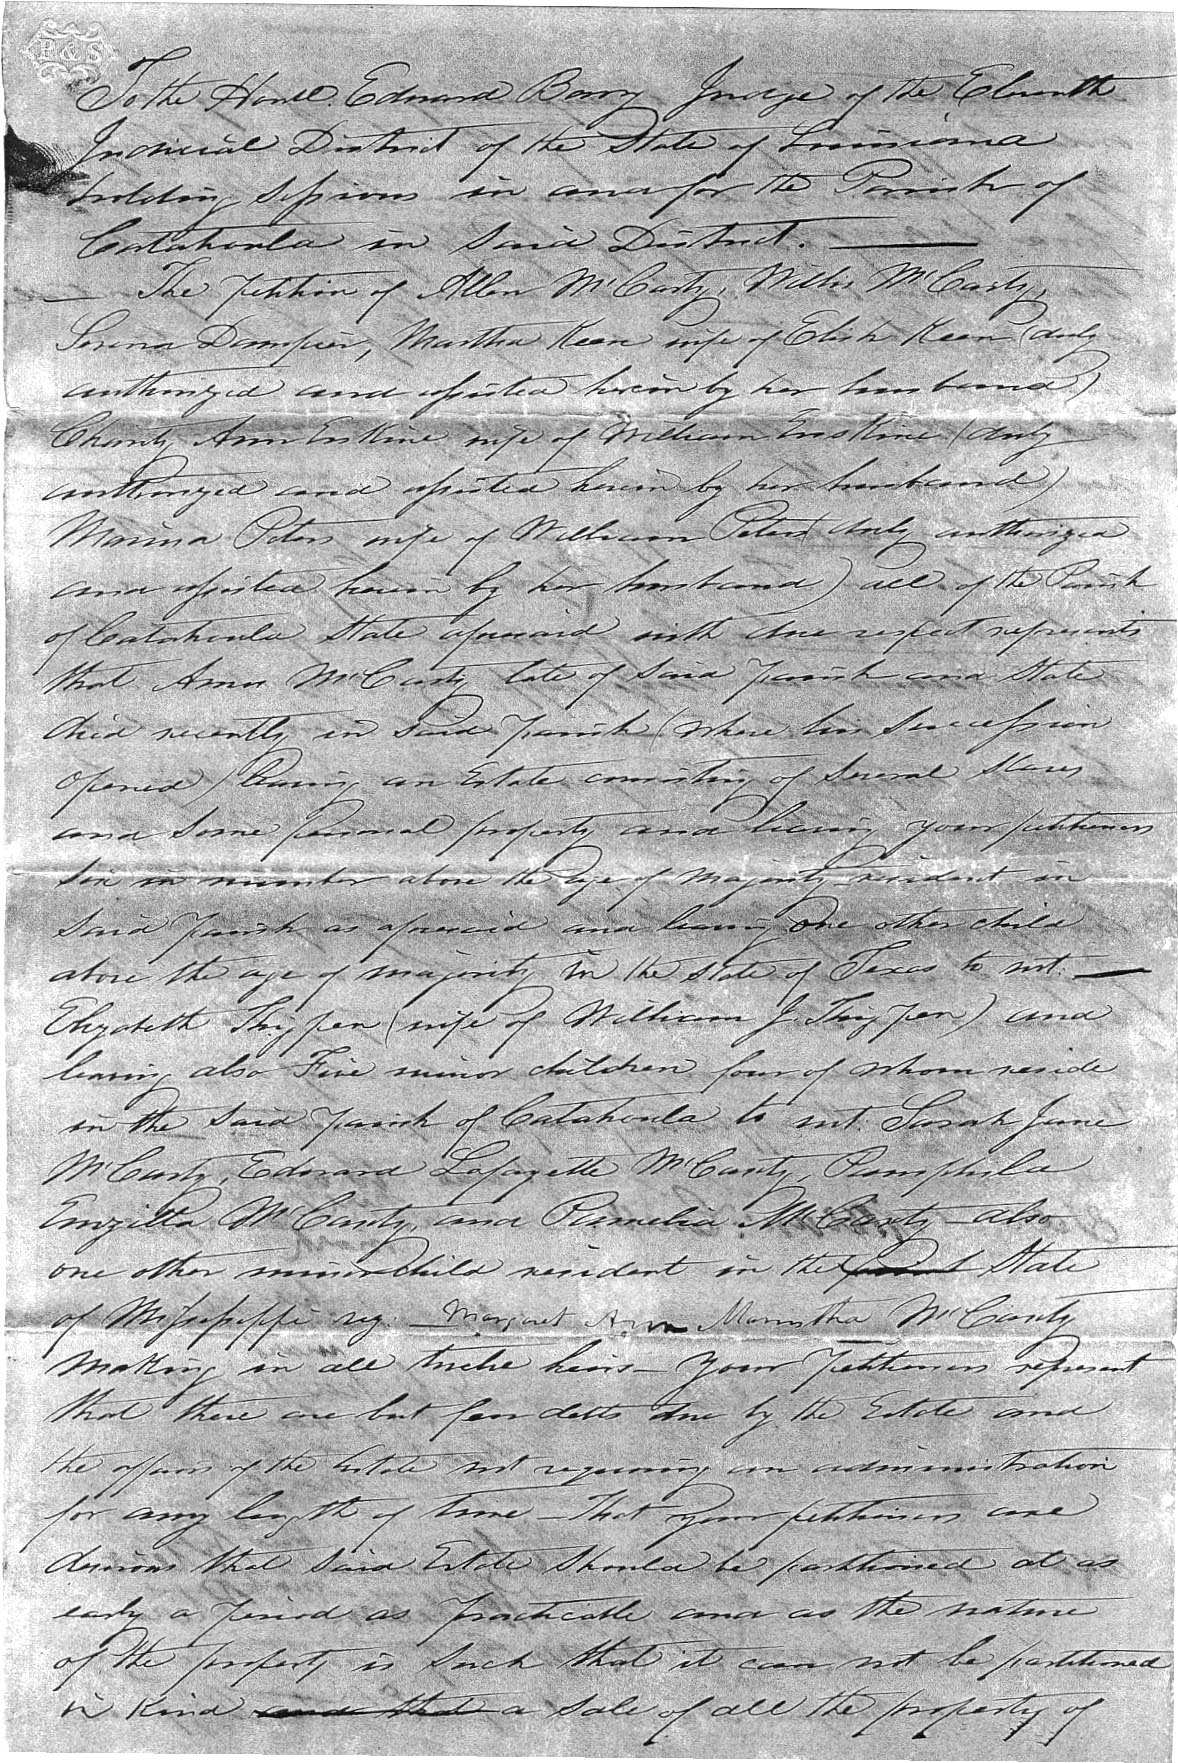 P & S
To the Honbl. Edward Barry Judge of the Eleventh
Judicial District of the State of Louisiana
holding sessions in and for the Parish of
Catahoula in said District.
The petition of Allen McCarty, Willis McCarty,
Serena Dampier, Martha Keen wife of Elish Keen (duly
authorized and assisted herein by her husband)
Charity Ann Erskine wife of William Erskine (duly
authorized and assisted herein by her husband)
Marina Peters wife of William Peters (duly authorized
and assisted herein by her husband) all of the Parish
of Catahoula State aforesaid with due respect represents
that Amos McCarty late of said parish and State
died recently in said parish (where his succession
opened) leaving an Estate consisting of several slaves
and some personal property and leaving your petitioners
six in number above the age of majority resident in
said parish as aforesaid and leaving one other child
above the age of majority in the state of Texas to wit:
Elizabeth Thigpen (wife of William J. Thigpen) and
leaving also Five minor children four of whom reside
in the said parish of Catahoula to wit: Sarah Jane
McCarty, Edward Lafayette McCarty, Pamphila
Enzilla McCarty, and Pamelia McCarty – also
one other minor child resident in the State
of Mississippi viz: Margaret Ann Marintha McCarty
making in all twelve heirs – Your petitioners represent
that there are but few debts due by the Estate and
the affairs of the Estate not requiring an administration
for any length of time – That your petitioners are
desirous that said Estate should be partitioned at as
early a period as practicable and as the nature
of the property is such that it can not be partitioned
in kind and that a sale of all the property of